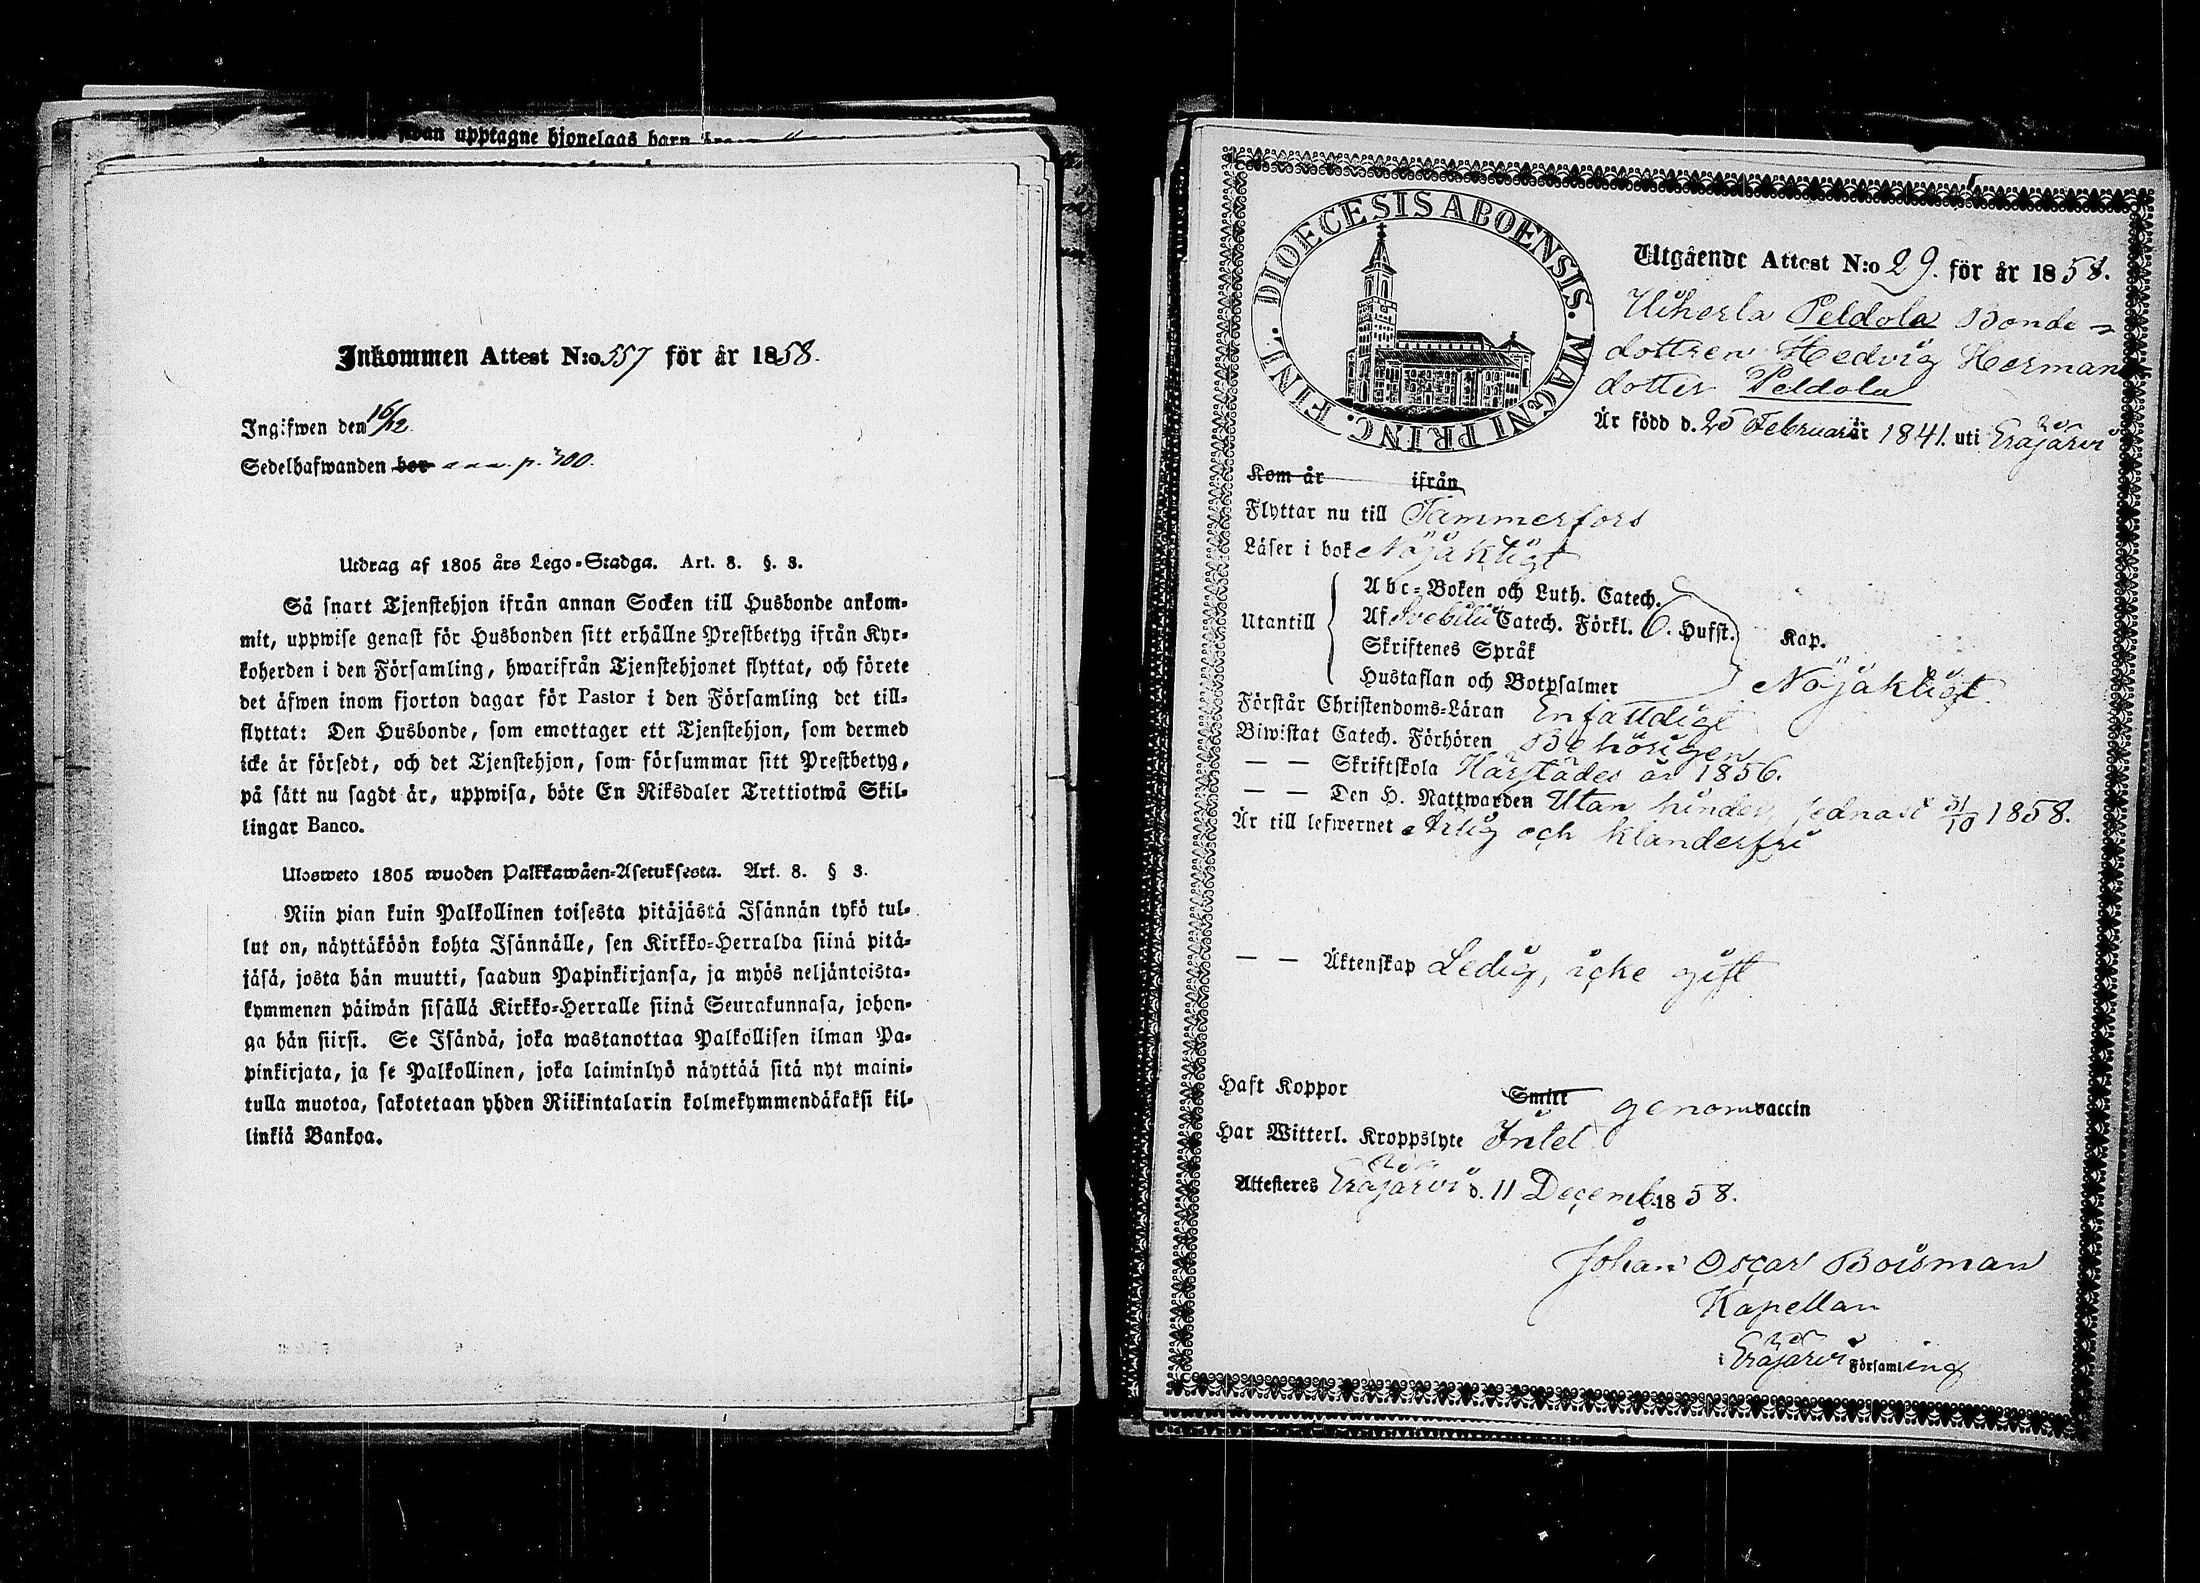 upptagne hjonelaas barn
Inkommen Attest N:o 557 för år 1858.
Ingifwen den 16/12.
Sedelhafwanden bor p. 700.
Utdrag af 1805 års Lego-Stadga. Art. 8. §. 3.
Så snart Tjenstehjon ifrån annan Socken till Husbonde ankom-
mit, uppwise genast för Husbonden sitt erhållne Prestbetyg ifrån Kyr-
koherden i den Församling, hwarifrån Tjenstehjonet flyttat, och förete
det äfwen inom fjorton dagar för Pastor i den Församling det till-
flyttat: Den Husbonde, som emottager ett Tjenstehjon, som dermed
icke är försedt, och det Tjenstehjon, som försummar sitt Prestbetyg,
på sätt nu sagdt är, uppwisa, böte En Riksdaler Trettiotwå Skil-
lingar Banco.
Ulosweto 1805 wuoden Palkkawäen-Asetuksesta. Art. 8. § 3.
Niin pian kuin Palkollinen toisesta pitäjästä Isännän tykö tul-
lut on, näyttäköön kohta Isännälle, sen Kirkko-Herralda siinä pitä-
jäsä, josta hän muutti, saadun Papinkirjansa, ja myös neljäntoista-
kymmenen päiwän sisällä Kirkko-Herralle siinä Seurakunnasa, johon-
ga hän siirsi. Se Isändä, joka wastanottaa Palkollisen ilman Pa-
pinkirjata, ja se Palkollinen, joka laiminlyö näyttää sitä nyt maini-
tulla muotoa, sakotetaan yhden Riikintalarin kolmekymmendäkaksi kil-
linkiä Bankoa.
DIOECESIS ABOENSIS. MAGNI PRINC. FINL.
Utgående Attest N:o 29. för år 1858.
Uiherla Peldola Bonde-
dottren Hedvig Herman
dotter Peldola
Är född d. 25 Februari år 1841. uti Eräjärvi
Kom år ifrån
Flyttar nu till Tammerfors
Läser i bok Nöjaktigt
Abc-Boken och Luth. Catech.
Utantill Af Svebilii Catech. Förkl. 6. Hufst. Kap.
Skriftenes Språk
Hustaflan och Botpsalmer Nöjaktigt
Förstår Christendoms-Läran Enfaldigt
Biwistat Catech. Förhören Behörigen
— — Skriftskola Härstädes år 1856.
— — Den H. Nattwarden Utan hinder, sednast 31/10 1858.
Är till lefwernet Ärlig och klanderfri
— — Äktenskap Ledig, icke gift
Haft Koppor Smitt genom vaccin
Har Witterl. Kroppslyte Intet
Attesteres Eräjärvi d. 11 Decemb. 1858.
Johan Oscar Boisman
Kapellan
i Eräjärvi Församling